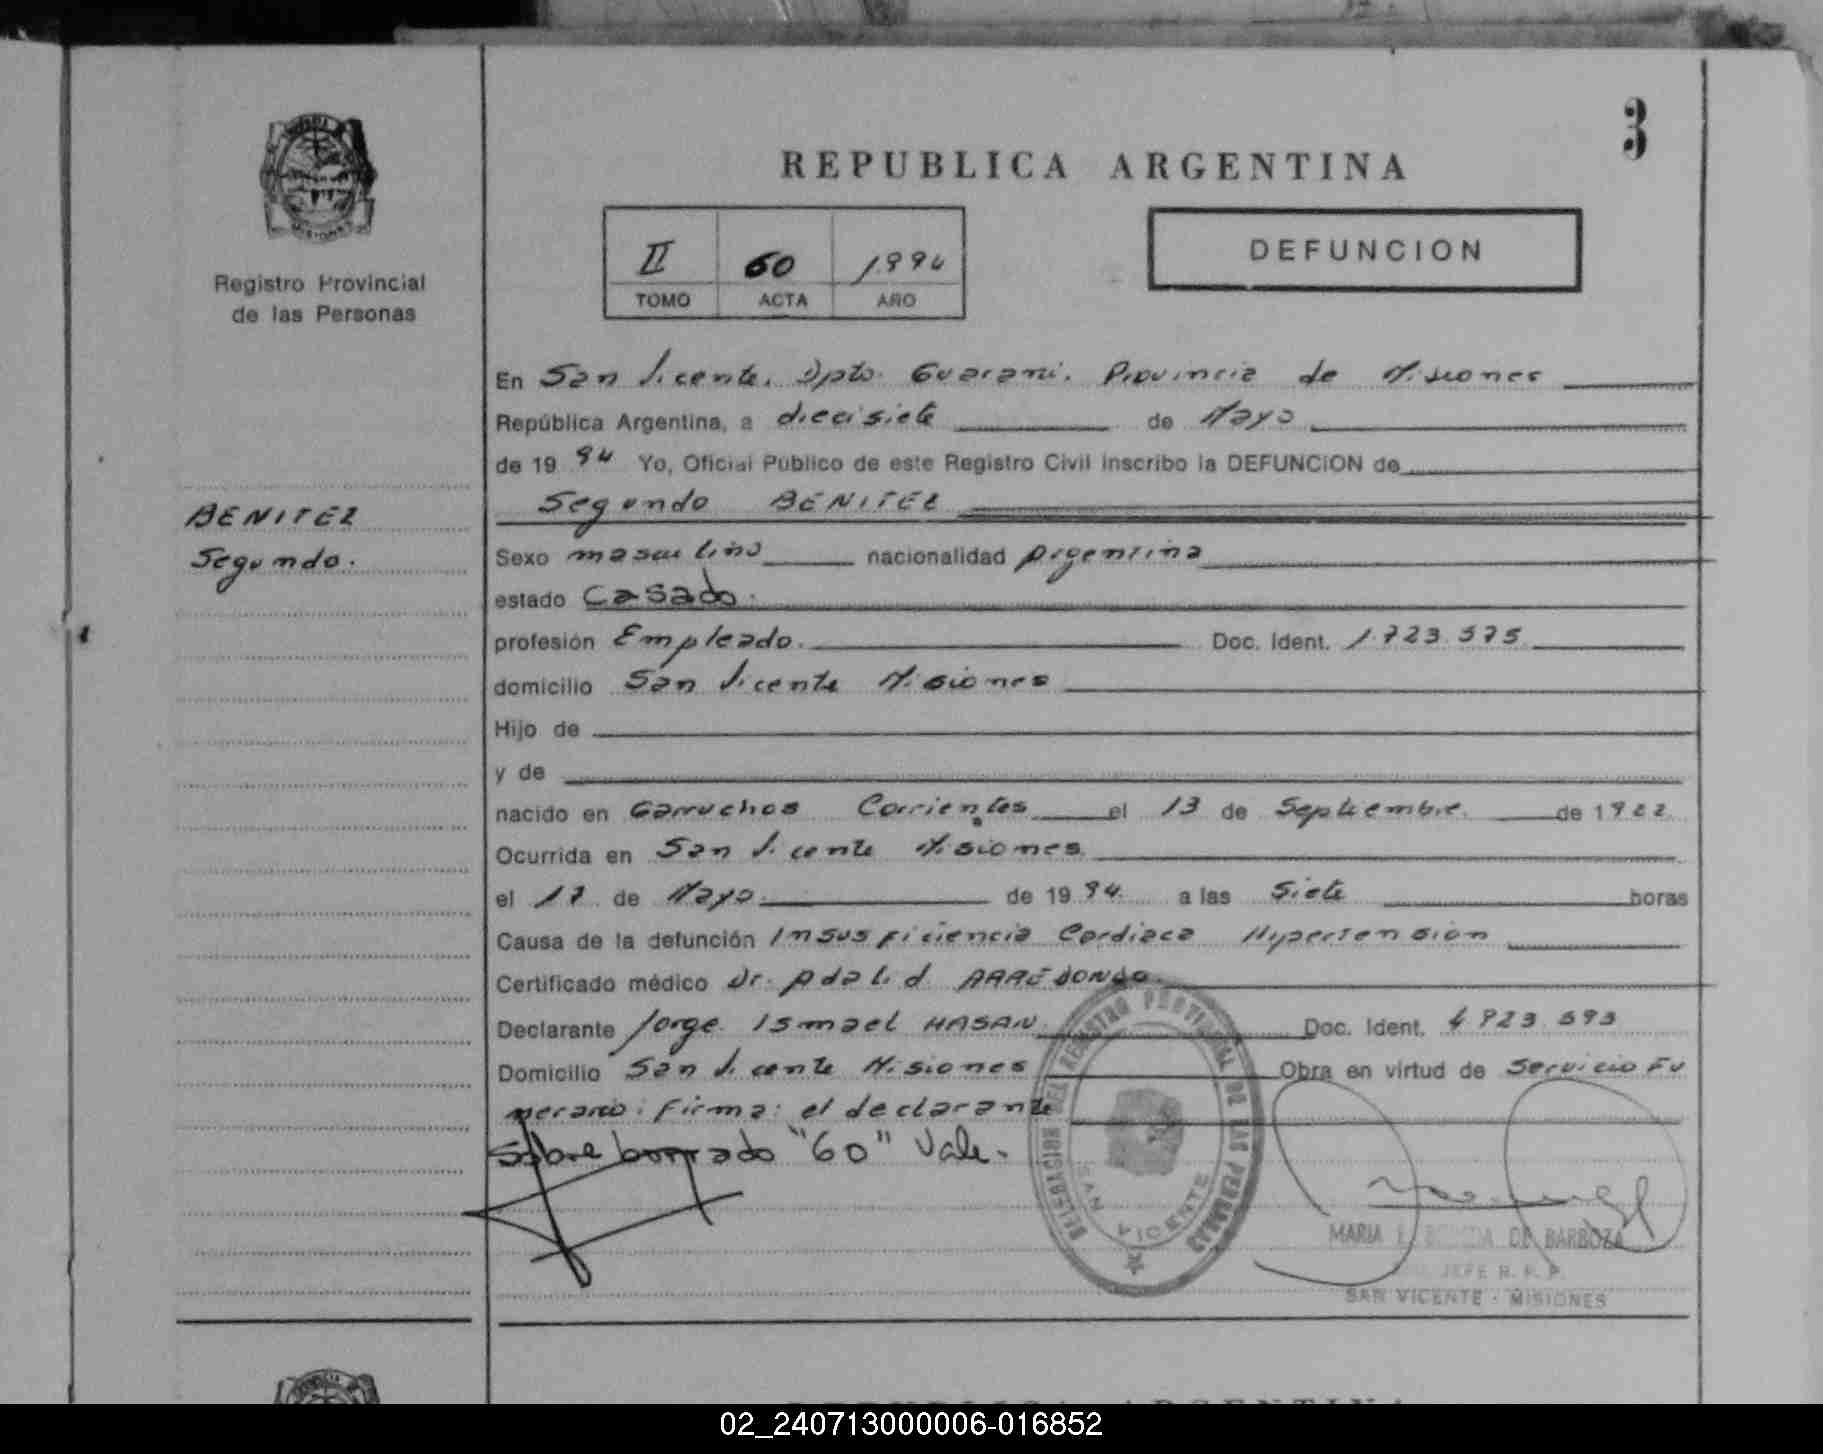 3
REPUBLICA ARGENTINA
II 60 1994
TOMO ACTA AÑO
DEFUNCION
Registro Provincial
de las Personas
BENITEZ
Segundo.
En San Vicente. Dpto. Guarani. Provincia de Misiones
República Argentina, a diecisiete de Mayo
de 19 94 Yo, Oficial Público de este Registro Civil inscribo la DEFUNCION de
Segundo BENITEZ
Sexo masculino nacionalidad Argentina
estado Casado.
profesión Empleado. Doc. Ident. 1.723.575.
domicilio San Vicente Misiones
Hijo de
y de
nacido en Garruchos Corrientes el 13 de Septiembre. de 1922
Ocurrida en San Vicente Misiones.
el 17 de Mayo. de 1994. a las Siete horas
Causa de la defunción Insuficiencia Cardiaca Hypertension
Certificado médico Dr. Adalid ARREDONDO.
Declarante Jorge Ismael HASAN Doc. Ident. 4.923.593
Domicilio San Vicente Misiones Obra en virtud de Servicio Fu
nerario: firma: el declarante
Sobre borrado "60" Vale.
DELEGACION DEL REGISTRO PROVINCIAL DE LAS PERSONAS
SAN VICENTE
MARIA DE BARBOZA
JEFE R. P. P.
SAN VICENTE - MISIONES
REPUBLICA ARGENTINA
02_240713000006-016852